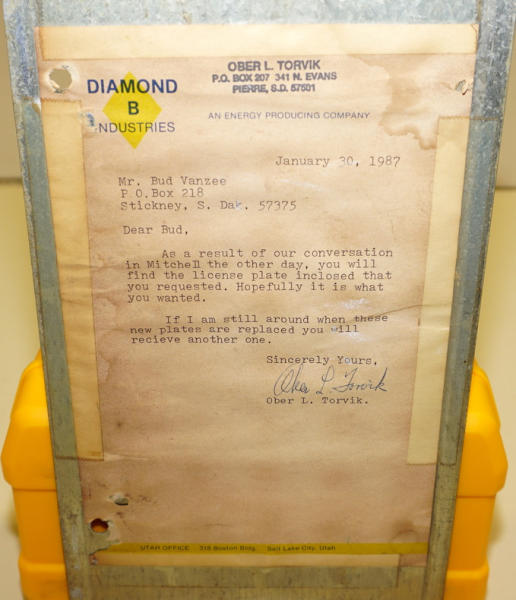 OBER L. TORVIK
P.O. BOX 207 341 N. EVANS
PIERRE, S.D. 57501
DIAMOND
B
INDUSTRIES
AN ENERGY PRODUCING COMPANY
January 30, 1987
Mr. Bud Vanzee
P O.Box 218
Stickney, S. Dak. 57375
Dear Bud,
As a result of our conversation
in Mitchell the other day, you will
find the license plate inclosed that
you requested. Hopefully it is what
you wanted.
If I am still around when these
new plates are replaced you will
recieve another one.
Sincerely Yours,
Ober L. Torvik
Ober L. Torvik.
UTAH OFFICE 318 Boston Bldg. Salt Lake City, Utah